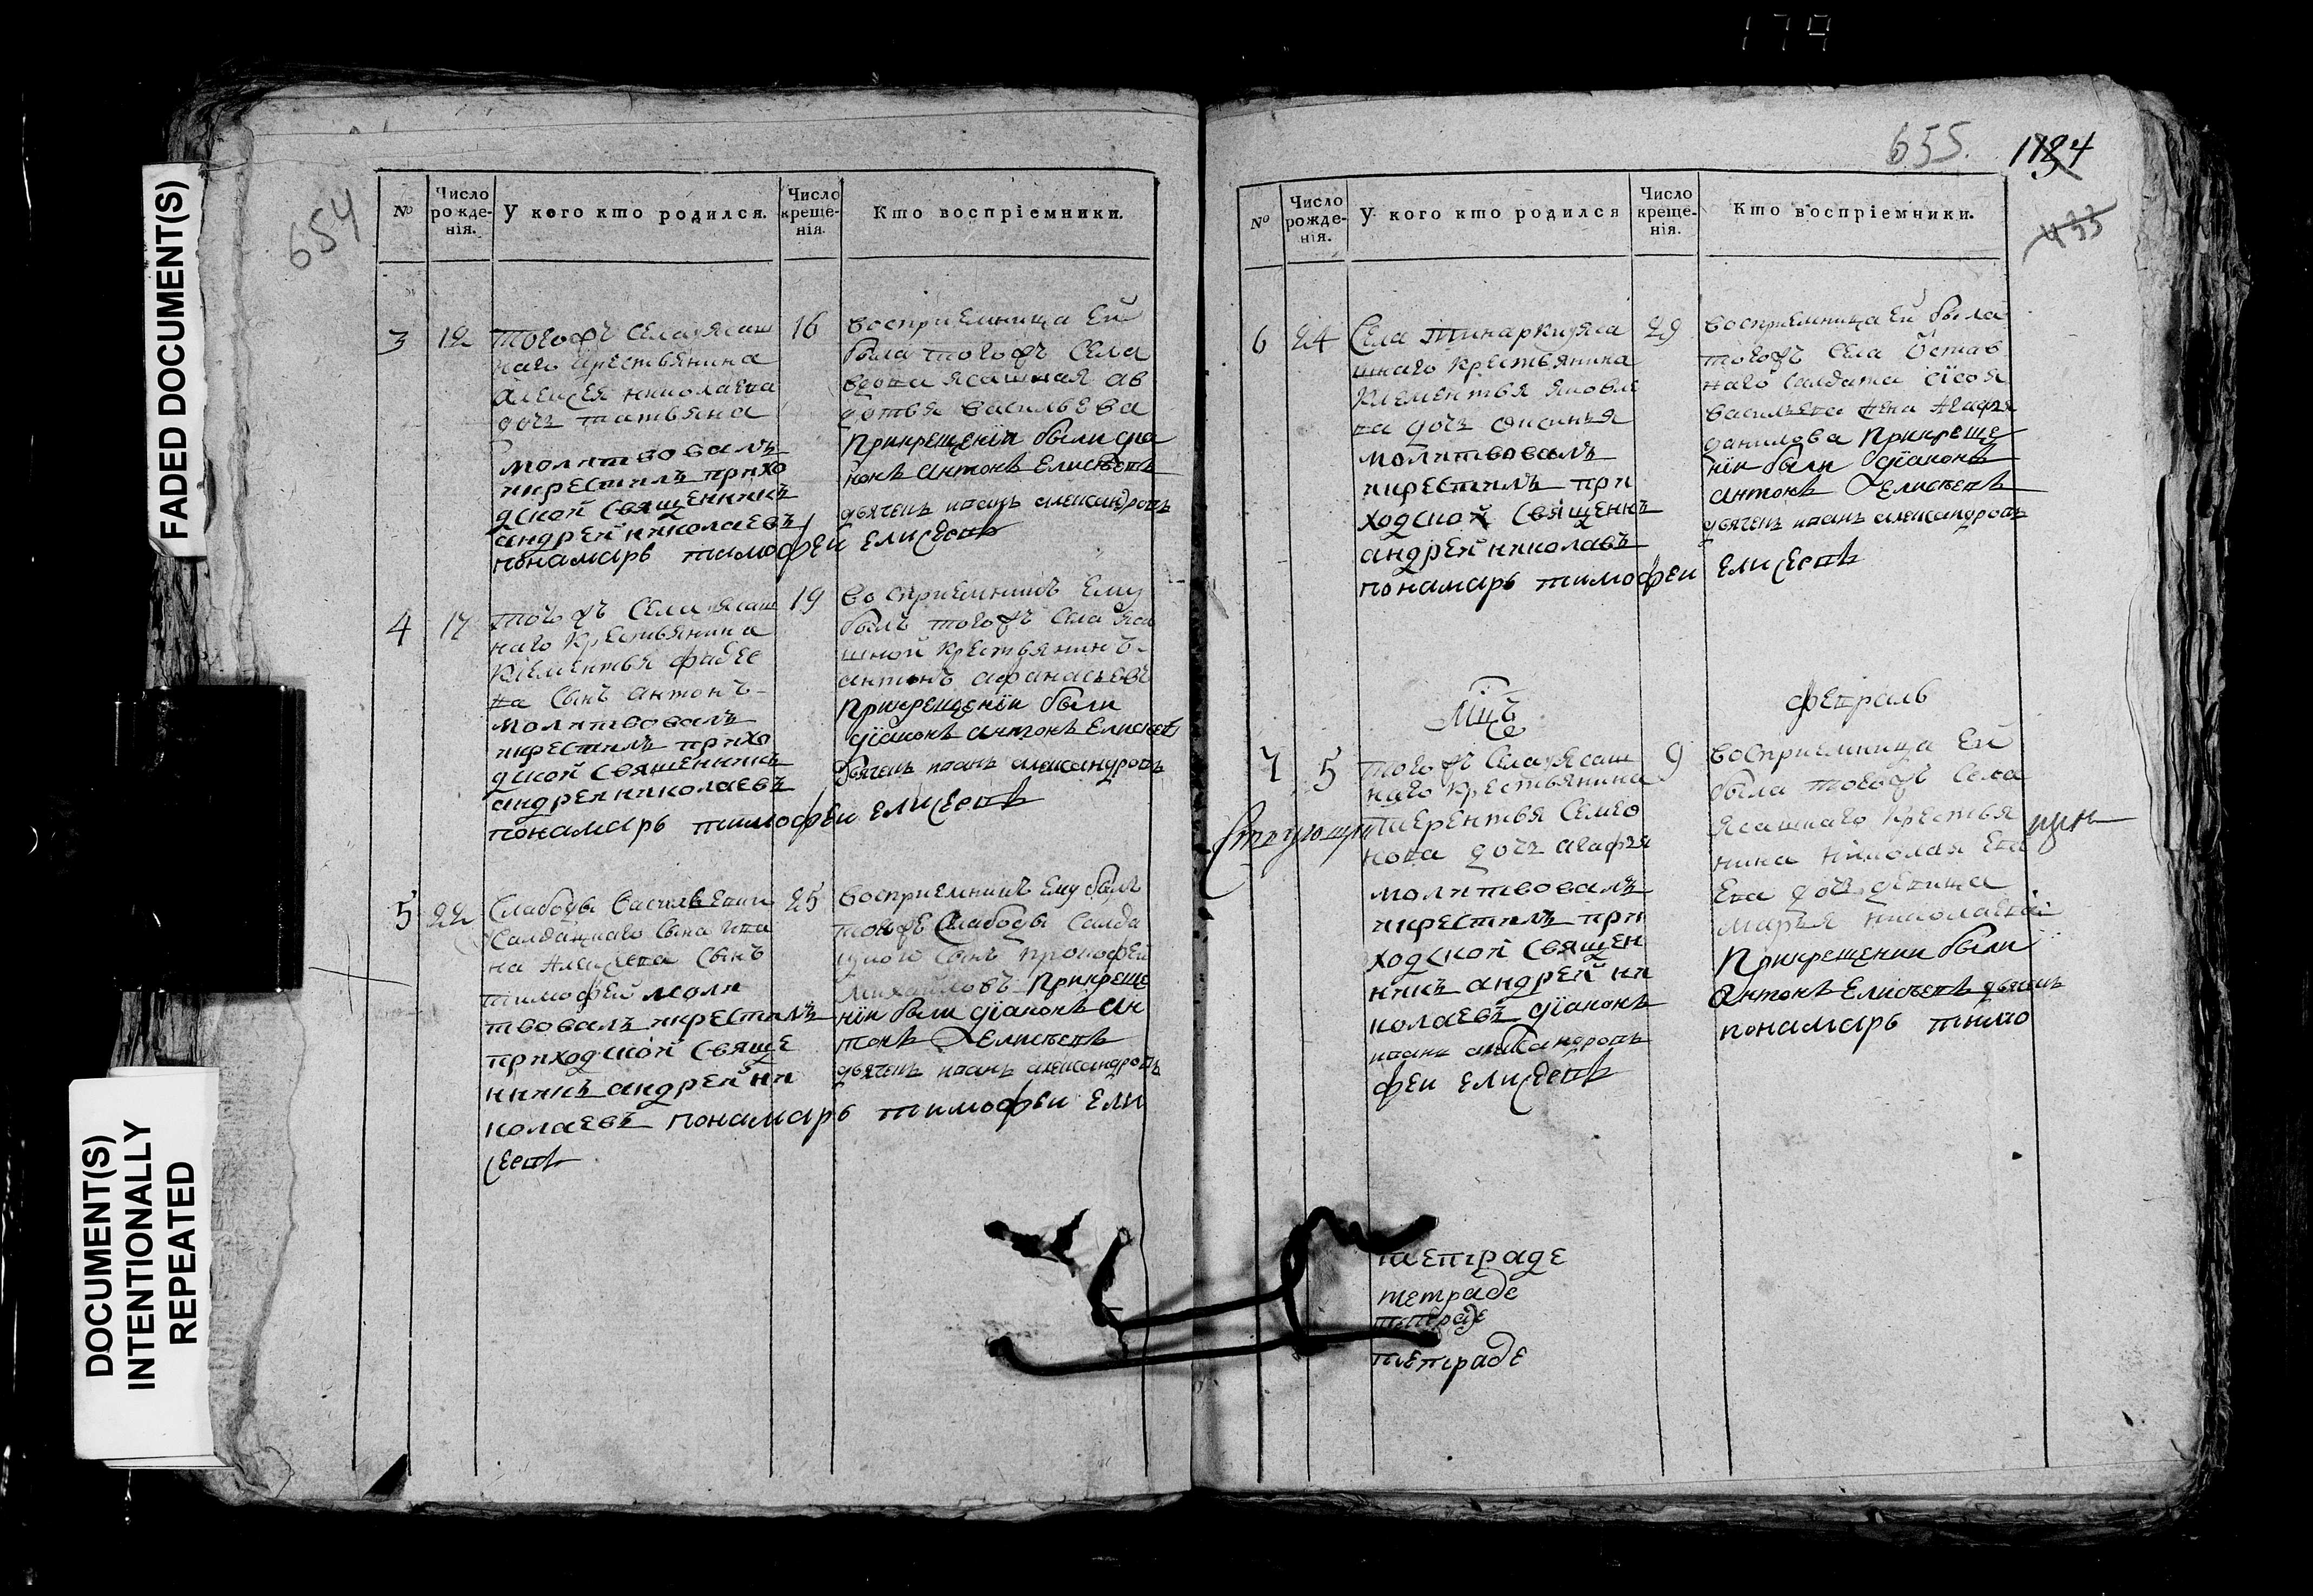 174
FADED DOCUMENT(S)
DOCUMENT(S)
INTENTIONALLY
REPEATED
654
№
Число рожде- нія.
У кого кто родился.
Число креще- нія.
Кто воспріемники.
3
12
тогожъ села ясаш
наго крестьянина
алексея николаева
дочь татьяна
молитвовалъ
икрестилъ прихо
дской священникъ
андрей николаевъ
16
восприемница Ей
была тогожъ села
вдова ясашная ав
дотья васильева
прикрещенїи были дїа
конъ антонъ Елисѣевъ
дьячекъ иванъ александровъ
понамарь тимофеи елисеевъ
4
17
тогожъ села ясаш
наго крестьянина
Климентья фадее
ва сынъ антонъ
молитвовалъ
икрестилъ прихо
дской священникъ
андреи николаевъ
19
восприемникъ Ему
былъ тогожъ села яса
шной крестьянинъ
антонъ афанасьевъ
прикрещенїи были
дїаконъ антонъ Елисѣевъ
дьячекъ иванъ александровъ
понамарь тимофеи елисеевъ
5
22
Слабоды василевки
салдацкаго сына ива
на алексеева сынъ
тимофей моли
твовалъ икрестилъ
приходской свяще
никъ андрей ни
колаевъ
25
восприемникъ Ему былъ
тойже слабоды салда
цкой сынъ прокофей
михайловъ прикреще
нїи были дїаконъ ан
тонъ Елисѣевъ
дьячекъ иванъ александровъ
понамарь тимофеи ели
сеевъ
655.
1184
433
№
Число рожде- нія.
У кого кто родился
Число креще- нія.
Кто воспріемники.
6
24
Села ясa
шнаго крестьянина
Клементья яковле
ва дочь
молитвовалъ
икрестилъ при
ходской священикъ
андрей николавъ
29
восприемница ей была
тогожъ села Отстав
наго салдата сїсоя
васильева жена агафья
данилова прикреще
нїи были дїаконъ
антонъ Елисѣевъ
дьячекъ иванъ александровъ
понамарь тимофеи елисеевъ
Мцъ
февраль
7
5
тогожъ села ясаш
наго крестьянина
терентья семио
нова дочь агафья
молитвовалъ
икрестилъ при
ходской священ
никъ андрей ни
колаевъ дїаконъ
иванъ александровъ
феи елисеевъ
9
восприемница Ей
была тогожъ села
ясашнаго крестья
нина николая
дочь девица
марья николаева
прикрещении были
антонъ Елисѣевъ дьячекъ
понамарь тимо
тетраде
тетраде
тетраде
тетраде